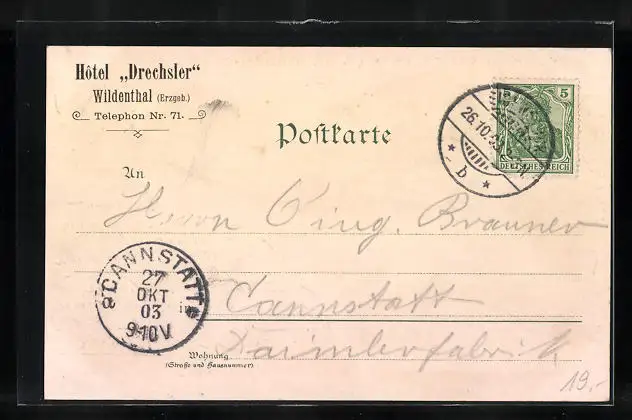 Hôtel „Drechsler“
Wildenthal (Erzgeb.)
Telephon Nr. 71.
Postkarte
5
DEUTSCHES REICH
26.10.
* b *
An
Herrn Ing. Brauner
CANNSTATT
27
OKT
03
9-10V
in
Cannstatt
Daimlerfabrik
Wohnung
(Straße und Hausnummer)
19.-